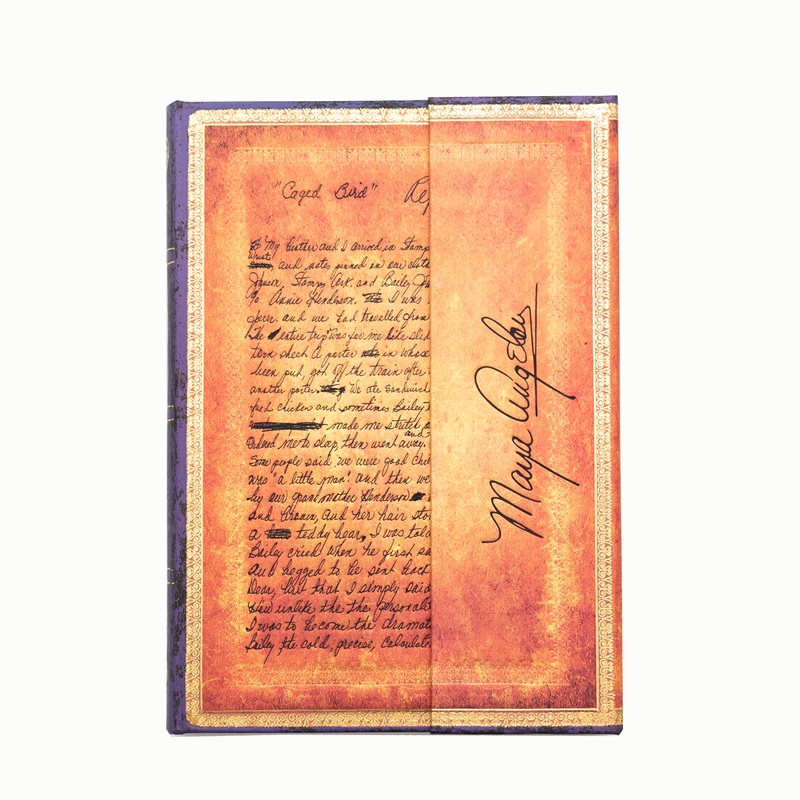 "Caged Bird" Rep
My brother and I arrived in Stamp
and notes pinned in our clothe
Johnson, Stamps Ark. and Bailey Joh
c/o. Annie Henderson. I was
four. and we had travelled from
The entire trip was for me like slid
tern sheet A porter in whose
been put, got off the train after
another porter. We ate sandwich
fried chicken and sometimes Bailey
made me stretch
Ordered me to sleep, then went and away.
Some people said, we were good chil
was "a little man." and then we
by our grandmother Henderson
and brown, and her hair sto
a teddy bear, I was told
Bailey cried when he first sa
and begged to be sent back
Dear, but that I simply said
view unlike the the personali
I was to become the dramat
Bailey the cold, precise, calculator
Maya Angelou